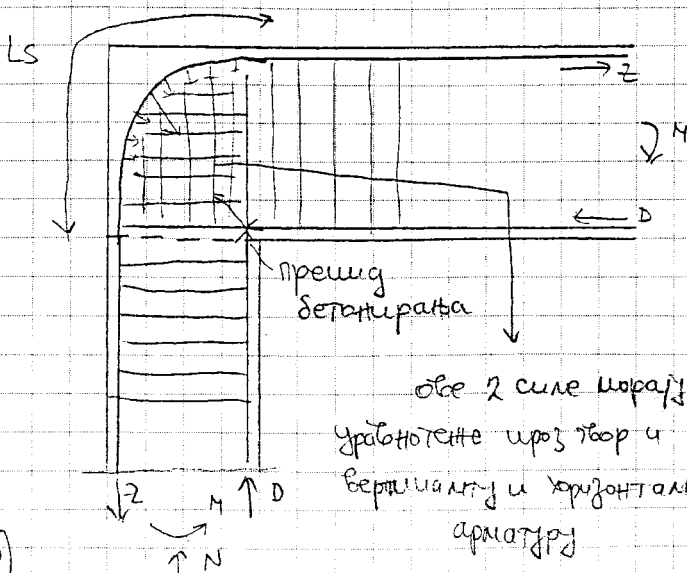 Ls
Z
M
D
прекид
бетонирања
ове 2 силе морају
уравнотене кроз чвор и
вертикалну и хоризонтал
арматуру
Z
M
D
N